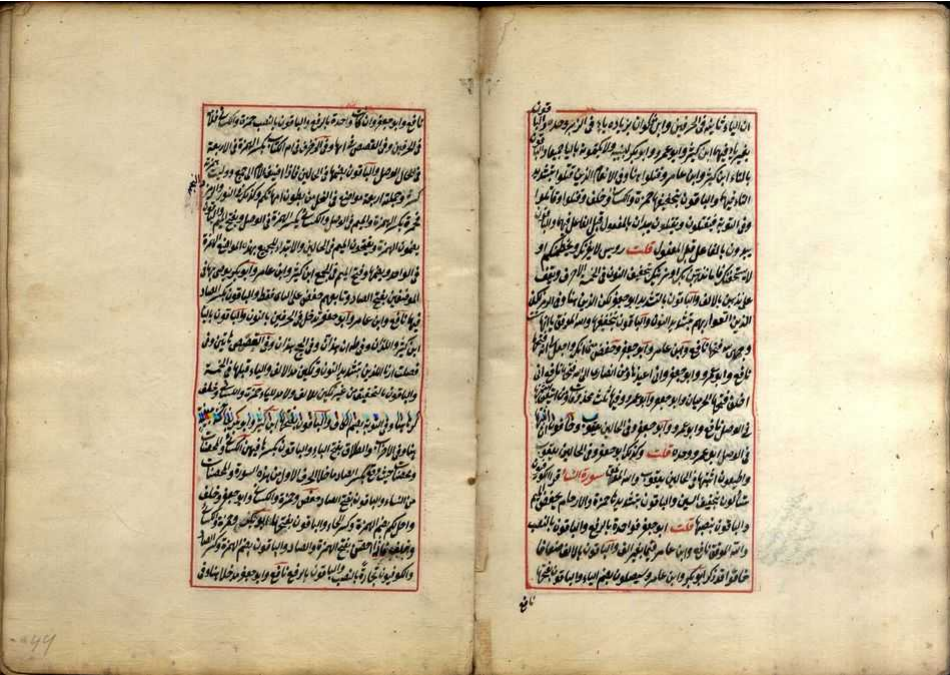 ان الياء ثابتة في الحرفين وابن ذكوان بزيادة باء في الزبر وحده والباقون
بغير باء فيهما ابن كثير وابو عمرو وابوبكر ليبيننه ولا يكتمونه بالياء جميعا والباقون
بالتاء ابن كثير وابن عامر وقتلوا هنا وفي الانعام الذين قتلوا بتشديد
التاء فيهما والباقون بتخفيفها حمزة والكسائي وخلف وقتلوا وقاتلوا
وفي التوبة فيقتلون ويقتلون يبدان بالمفعول قبل الفاعل فيهما والباقون
يبدون بالفاعل قبل المفعول قلت رويس لا يغرنك ويحطمنكم او
لا يستخفنك فاما نذهبن بك او نرينك بتخفيف النون في الخمسة الاحرف ويقف
على نذهبن بالالف والباقون بالتشديد ابو جعفر لكن الذين هنا وفي الزمر لكن
الذين اتقوا ربهم بتشديد النون والباقون بتخفيفها والله الموفق ياءاتها
وجهي لله فتحها نافع وابن عامر وابو جعفر وحفص مني انك واجعل لي آية فتحها
نافع وابو عمرو وابو جعفر واني اعيذها ومن انصاري الى الله فتحها نافع اني
اخلق فتحها الحرميان وابو عمرو وابو جعفر وفيها ثلث محذوفات ومن اتبعن اثبتها
في الوصل نافع وابو عمرو وابو جعفر وفي الحالين يعقوب وخافون اثبتها
في الوصل ابو عمرو وحده قلت وكذلك ابو جعفر وفي الحالين يعقوب
واطيعون اثبتها في الحالين يعقوب والله الموفق سورة النساء قرا الكوفيون
تسالون بتخفيف السين والباقون بتشديدها حمزة والارحام بخفض الميم
والباقون بنصبها قلت ابو جعفر فواحدة بالرفع والباقون بالنصب
والله الموفق نافع وابن عامر قيما بغير الف والباقون بالالف ضعافا
خافوا قد ذكر ابو بكر وابن عامر وسيصلون بضم الياء والباقون بفتحها
نافع
نافع وابو جعفر وان كانت واحدة بالرفع والباقون بالنصب حمزة والكسائي فلامه
في الحرفين وفي القصص في امها وفي الزخرف في ام الكتاب بكسر الهمزة في الاربعة
في الحال الوصل والباقون بضمها في الحالين فاذا اضيف الام الى جمع ووليت همزته
كسرة وجملته اربعة مواضع في النحل من بطون امهاتكم وكذلك في النور والزمر والنجم
فحمزة بكسر الهمزة والميم في الوصل والكسائي بكسر الهمزة في الوصل وبفتح الميم والباقون
يضمون الهمزة ويفتحون الميم في الحالين والابتداء للجميع بهذه المواضع بضم الهمزة
في الواحد وبضمها وفتح الميم في الجمع ابن كثير وابن عامر وابو بكر يوصى بها في
الموضعين بفتح الصاد وتابعهم حفص على الثاني فقط والباقون بكسر الصاد
فيهما نافع وابن عامر وابو جعفر ندخله في الحرفين بالنون والباقون بالياء
ابن كثير واللذان وفي طه ان هذان وفي الحج هذان وفي القصص هاتين وفي
فصلت ارنا اللذين بتشديد النون وتمكين مد الالف والياء قبلها في الخمسة
والباقون بالتخفيف من غير تمكين للالف والا مد الياء حمزة والكسائي وخلف
كرها هنا وفي التوبة بضم الكاف والباقون بفتحها ابن كثير وابو بكر مبينة
هنا وفي الاحزاب والطلاق بفتح الياء والباقون بكسرها فيهن الكسائي والمحصنات
ومحصنات حيث وقع بكسر الصاد ما خلا الحرف الاول من هذه السورة والمحصنات
من النساء والباقون بفتح الصاد حفص وحمزة والكسائي وابو جعفر وخلف
واحل لكم بضم الهمزة وكسر الحاء والباقون بفتحهما ابو بكر وحمزة والكسائي
وخلف فاذا احصن بفتح الهمزة والصاد والباقون بضم الهمزة وكسر الصاد
والكوفيون تجارة بالنصب والباقون بالرفع نافع وابو جعفر مدخلا هنا وفي